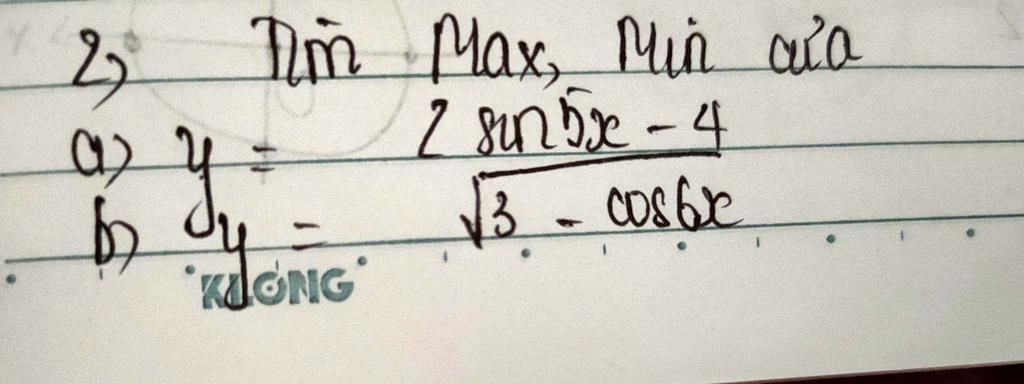 2) Tìm Max, Min của
a) y = 2 sin5x - 4
b) y = √(3 - cos6x)
KLONG